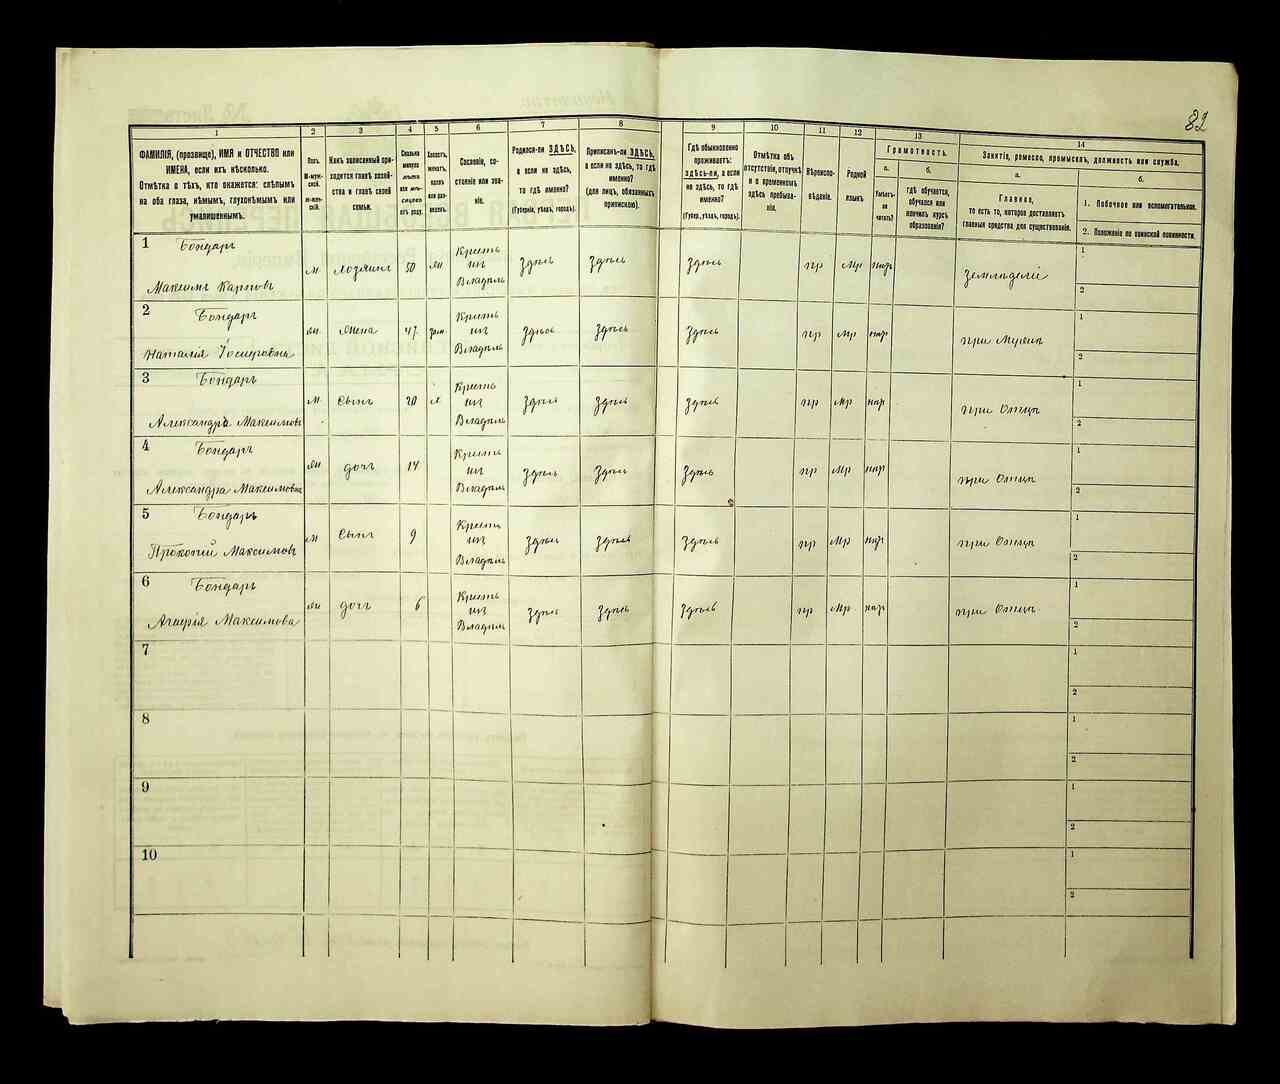 82
1 2 3 4 5 6 7 8 9 10 11 12 13 14
ФАМИЛІЯ, (прозвище), ИМЯ и ОТЧЕСТВО или
ИМЕНА, если ихъ нѣсколько.
Отмѣтка о тѣхъ, кто окажется: слѣпымъ
на оба глаза, нѣмымъ, глухонѣмымъ или
умалишеннымъ.
Полъ.
М-муж-
ской.
Ж-жен-
скій.
Какъ записанный при-
ходится главѣ хозяй-
ства и главѣ своей
семьи.
Сколько
минуло
лѣтъ
или мѣ-
сяцевъ
отъ роду.
Холостъ,
женатъ,
вдовъ
или раз-
веденъ.
Сословіе, со-
стояніе или зва-
ніе.
Родился-ли ЗДѢСЬ,
а если не здѣсь,
то гдѣ именно?
(Губернія, уѣздъ, городъ).
Приписанъ-ли ЗДѢСЬ,
а если не здѣсь, то гдѣ
именно?
(для лицъ, обязанныхъ
припискою).
Гдѣ обыкновенно
проживаетъ:
здѣсь-ли, а если
не здѣсь, то гдѣ
именно?
(Губер., уѣздъ, городъ).
Отмѣтка объ
отсутствіи, отлучкѣ
и о временномъ
здѣсь пребыва-
ніи.
Вѣроиспо-
вѣданіе.
Родной
языкъ.
Грамотность.
а.
Умѣетъ-
ли
читать?
б.
гдѣ обучается,
обучался или
кончилъ курсъ
образованія?
Занятіе, ремесло, промыселъ, должность или служба.
а.
Главное,
то есть то, которое доставляетъ
главныя средства для существованія.
б.
1. Побочное или вспомогательное.
2. Положеніе по воинской повинности.
1 Бондарь
Максимъ Карповъ
м хозяинъ 50 ж
Крестъ
изъ
Владѣль
здѣсь здѣсь здѣсь пр Мр нгр земледѣліе
1
2
2 Бондарь
Наталія
ж жена 47 зам
Крестъ
изъ
Владѣль
здѣсь здѣсь здѣсь пр Мр нгр при Мужѣ
1
2
3 Бондарь
Александръ Максимовъ
м сынъ 20 х
Крестъ
изъ
Владѣль
здѣсь здѣсь здѣсь пр Мр нгр при Отцѣ
1
2
4 Бондарь
Александра Максимовна
ж дочь 14
Крестъ
изъ
Владѣль
здѣсь здѣсь здѣсь пр Мр нгр при Отцѣ
1
2
5 Бондарь
Прокопій Максимовъ
м сынъ 9
Крестъ
изъ
Владѣль
здѣсь здѣсь здѣсь пр Мр нгр при Отцѣ
1
2
6 Бондарь
Максимова
ж дочь 6
Крестъ
изъ
Владѣль
здѣсь здѣсь здѣсь пр Мр нгр при Отцѣ
1
2
7
1
2
8
1
2
9
1
2
10
1
2